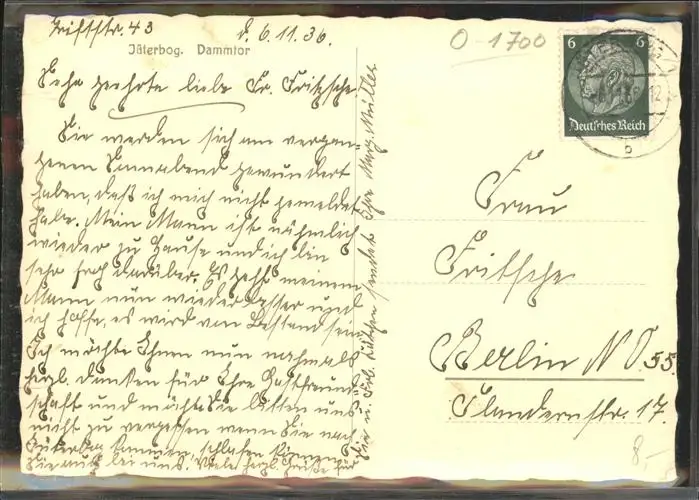 Triftstr. 43 d. 6.11.36.
Jüterbog. Dammtor
Sehr geehrte liebe Fr. Fritzsche
Sie werden sich am vergan-
genen Sonnabend gewundert
haben, daß ich mich nicht gemeldet
habe. Mein Mann ist nähmlich
wieder zu Hause und ich bin
sehr froh darüber. Es geht meinem
Mann nun wieder besser und
ich hoffe, es wird von Bestand sein
Ich möchte Ihnen nun nochmals
herzl. danken für Ihre Gastfreund-
schaft und möchte Sie bitten uns
nicht zu vergessen wenn Sie nach
Jüterbog kommen, schlafen können
Sie auch bei uns. Viele herzl. Grüße für
Sie u. Frl. sendet Ihre Marg. Müller
O-1700
6 6
Deutsches Reich
12
b
Frau
Fritsche
Berlin N O. 55.
Flandernstr. 17.
8,-